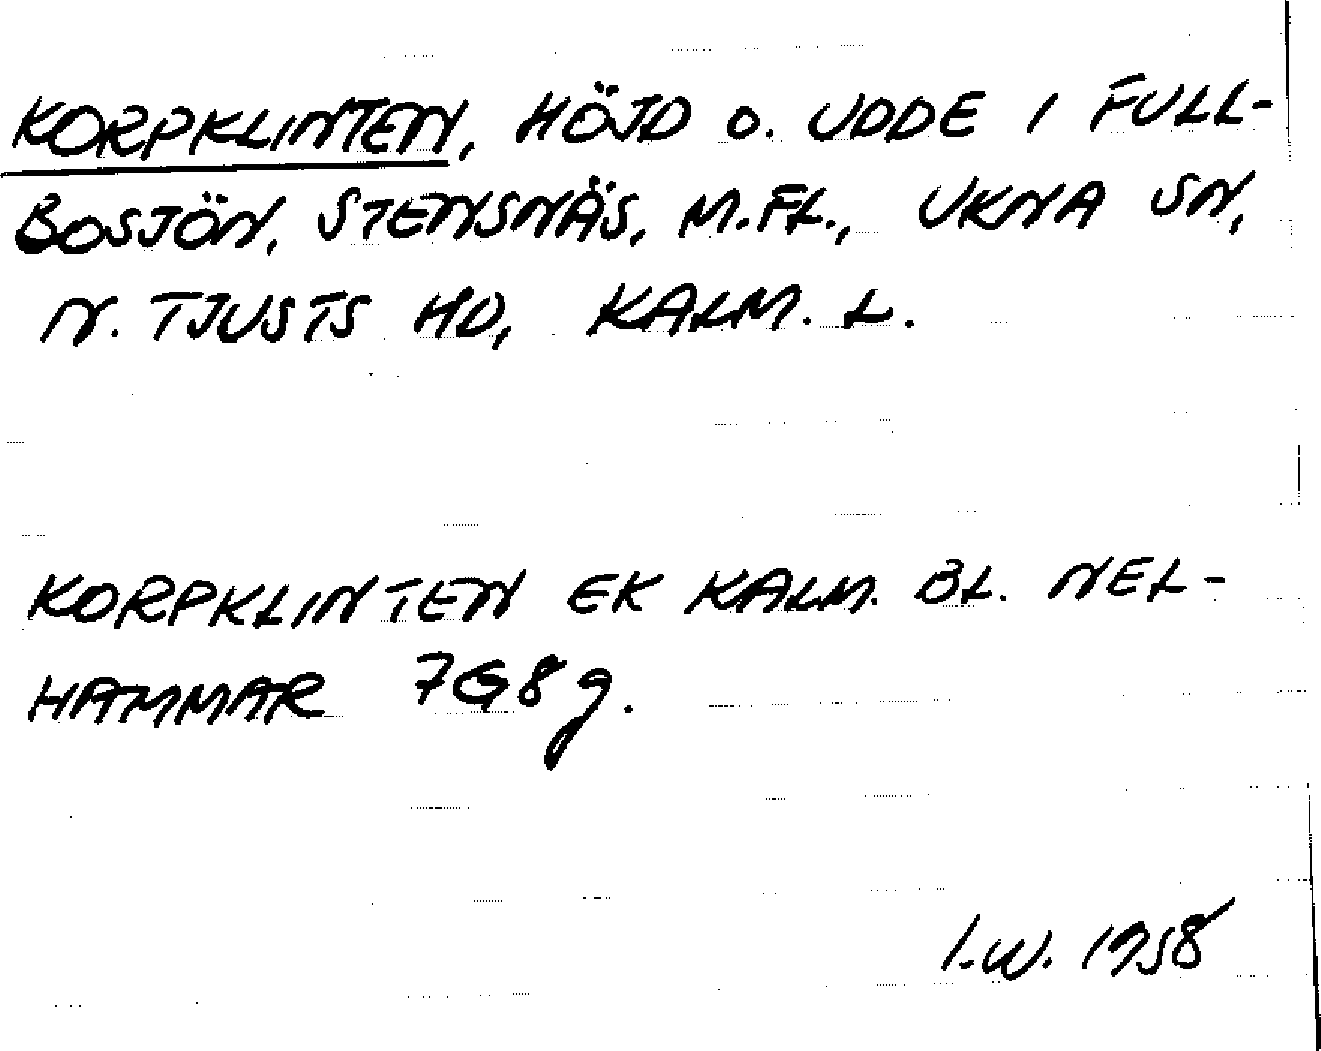 KORPKLINTEN, HÖJD O. UDDE I FULL-
BOSJÖN, STENSNÄS, M.FL., UKNA SN,
N. TJUSTS HD, KALM. L.
KORPKLINTEN EK KALM. BL. NEL-
HAMMAR 7G8g.
I.W. 1958